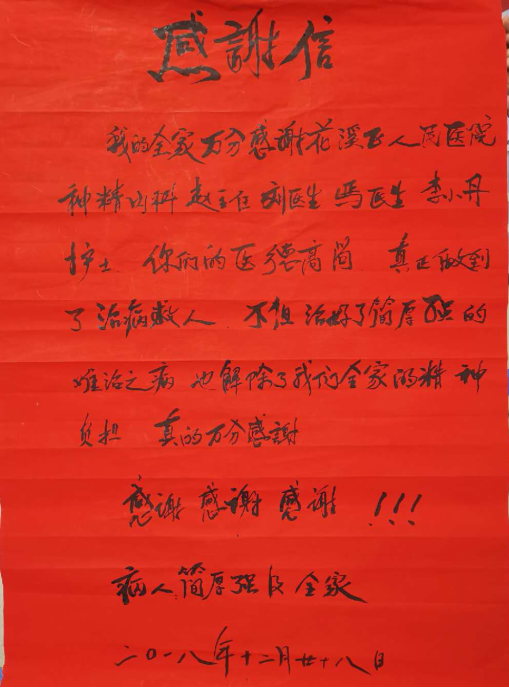 感謝信
我的全家万分感谢花溪区人民医院
神精内科 赵主任 刘医生 冯医生 李小丹
护士 你们的医德高尚 真正做到
了治病救人 不但治好了简厚强的
难治之病 也解除了我们全家的精神
负担 真的万分感謝
感謝 感谢 感谢 !!!
病人简厚强及全家
二0一八年十二月廿十八日